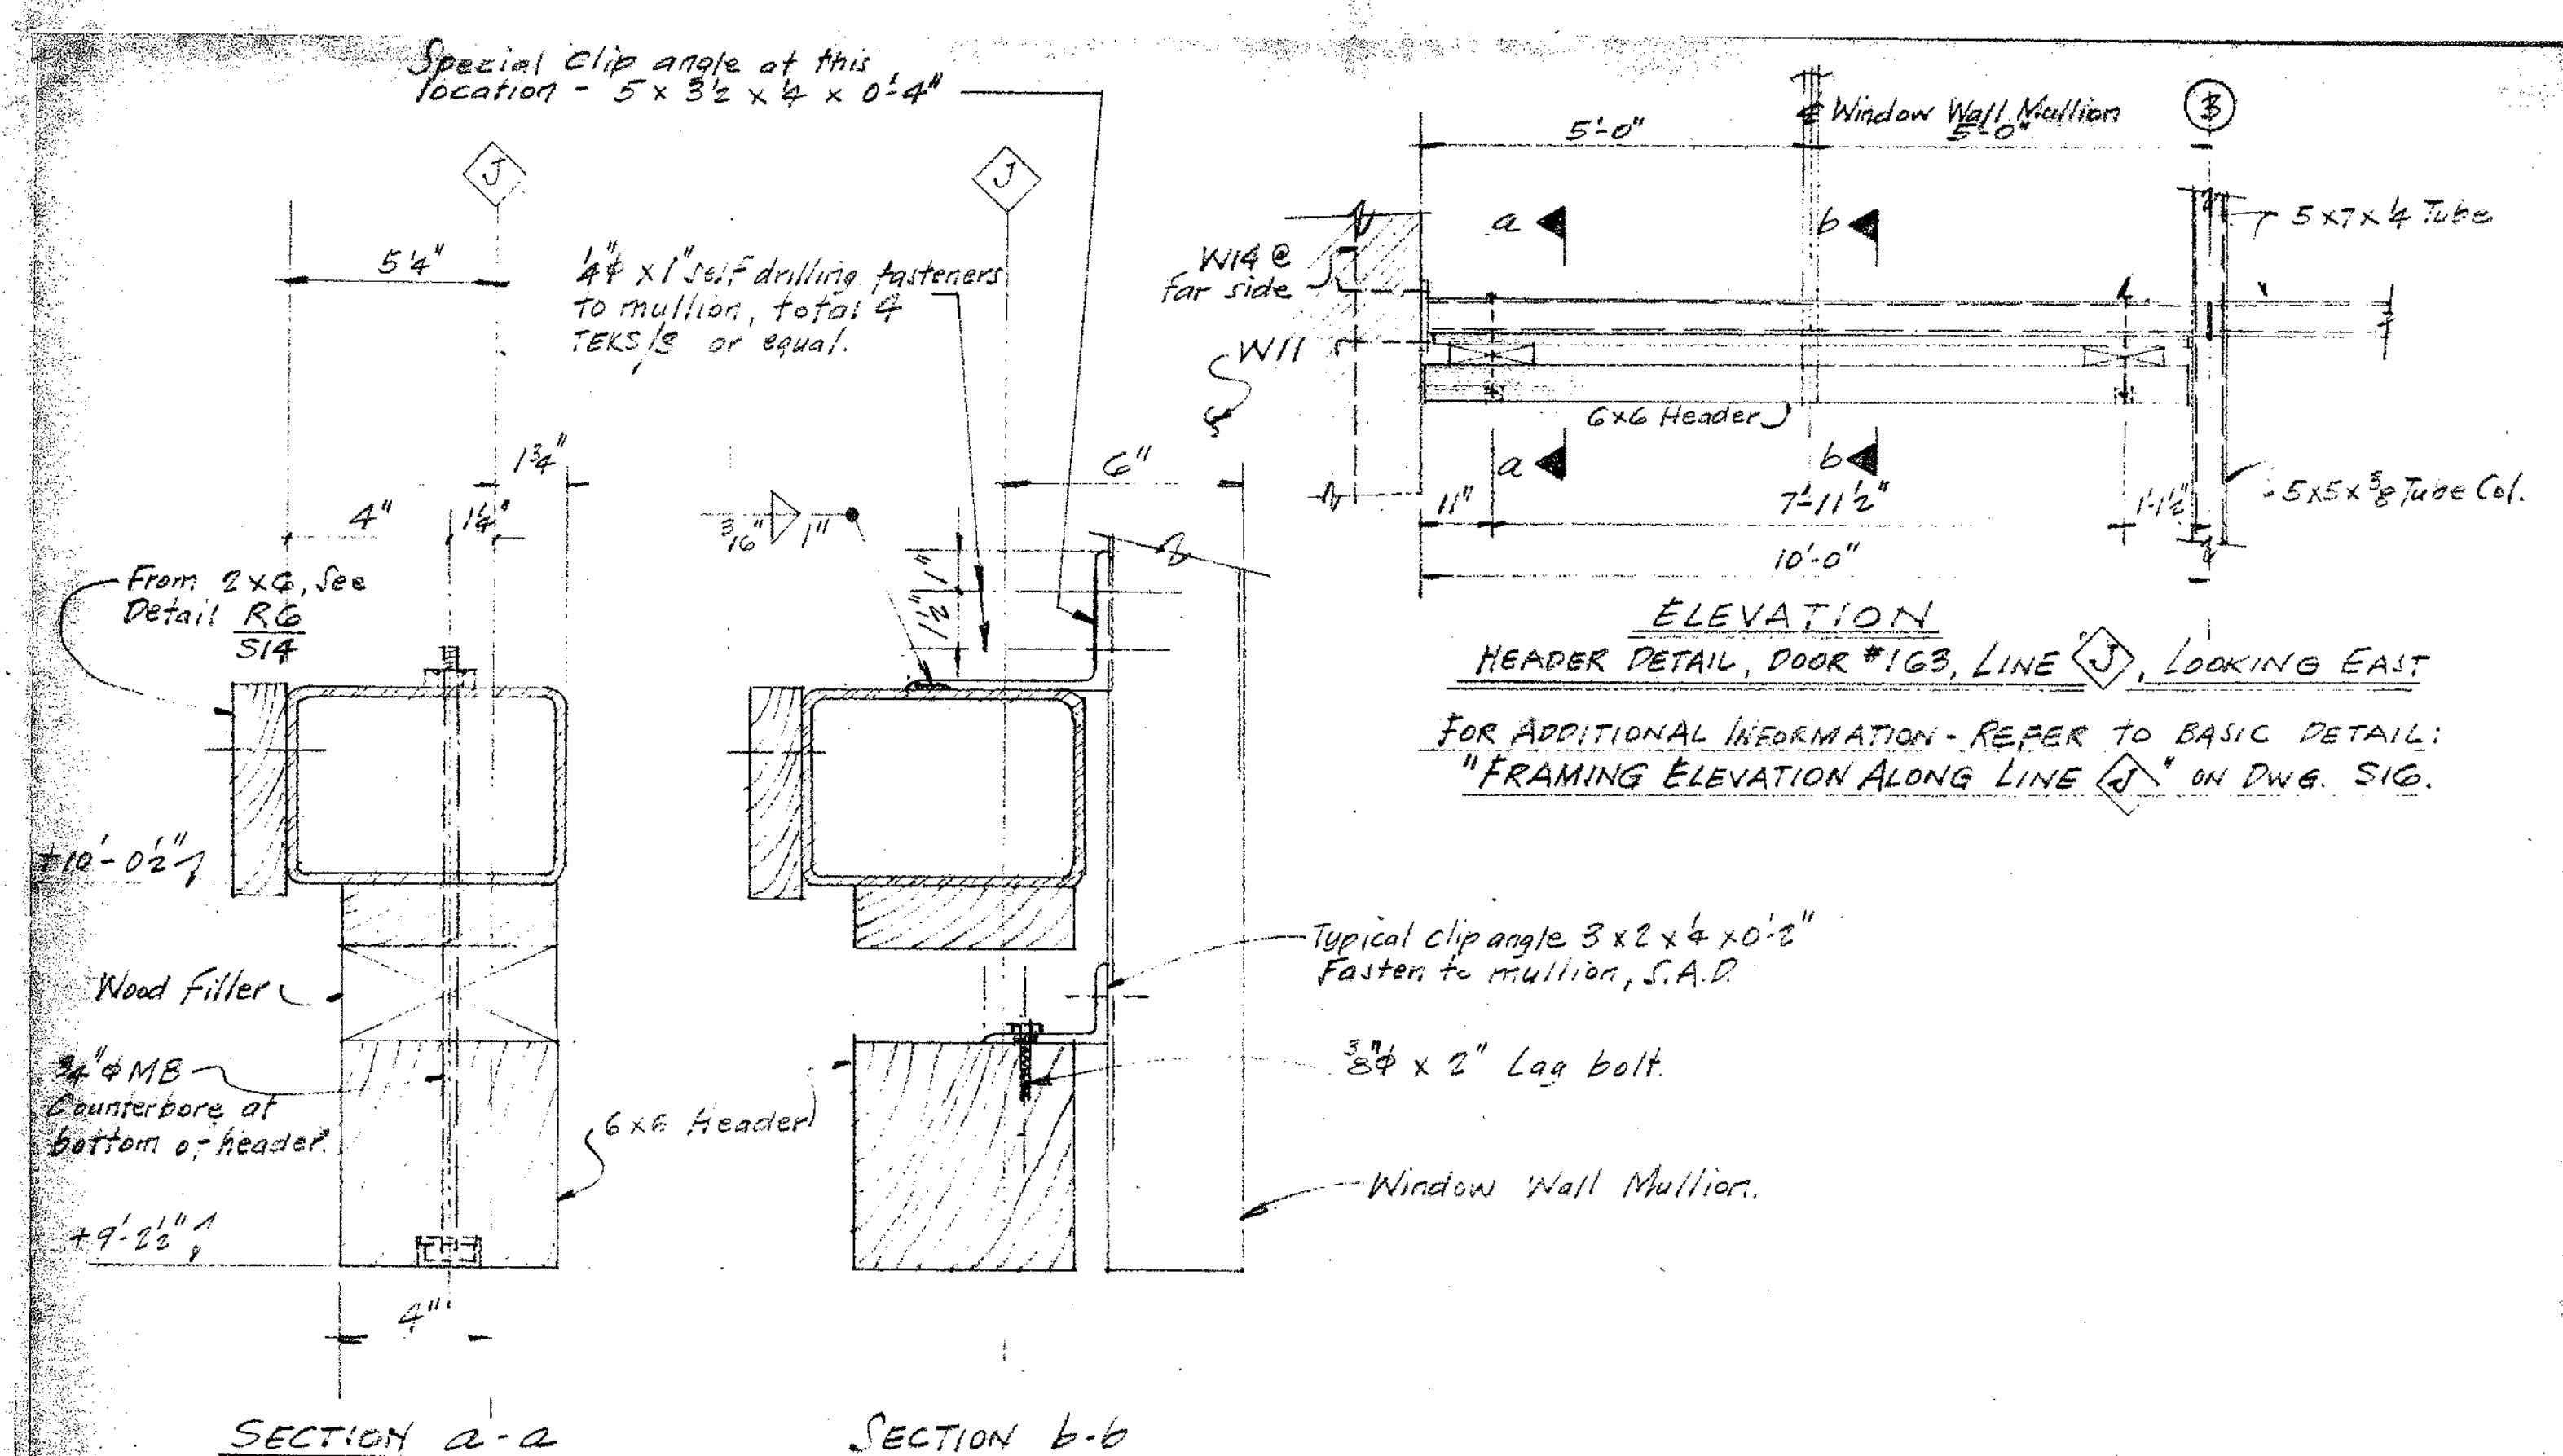 Special Clip angle at this
location - 5 x 3½ x ¼ x 0'-4"
J
J
5¼"
¼"φ x 1" self drilling fasteners
to mullion, total 4
TEKS/3 or equal.
1¾"
4"
1¼"
3/16"
1"
6"
1"
1½"
From 2x6, See
Detail R6
S14
+10'-0½"
Wood Filler
¾"φ MB
Counterbore at
bottom of header.
6x6 Header
+9'-2½"
4"
SECTION a-a
Typical clip angle 3 x 2 x ¼ x 0'-2"
Fasten to mullion, S.A.D.
⅜"φ x 2" Lag bolt.
Window Wall Mullion.
SECTION b-b
℄ Window Wall Mullion
5'-0"
5'-0"
3
a
b
5x7x¼ Tube
W14 @
far side
W11
6x6 Header
a
b
5x5x⅜ Tube Col.
11"
7'-11½"
1'-1½"
10'-0"
ELEVATION
HEADER DETAIL, DOOR #163, LINE J, LOOKING EAST
FOR ADDITIONAL INFORMATION - REFER TO BASIC DETAIL:
"FRAMING ELEVATION ALONG LINE J" ON DWG. S16.